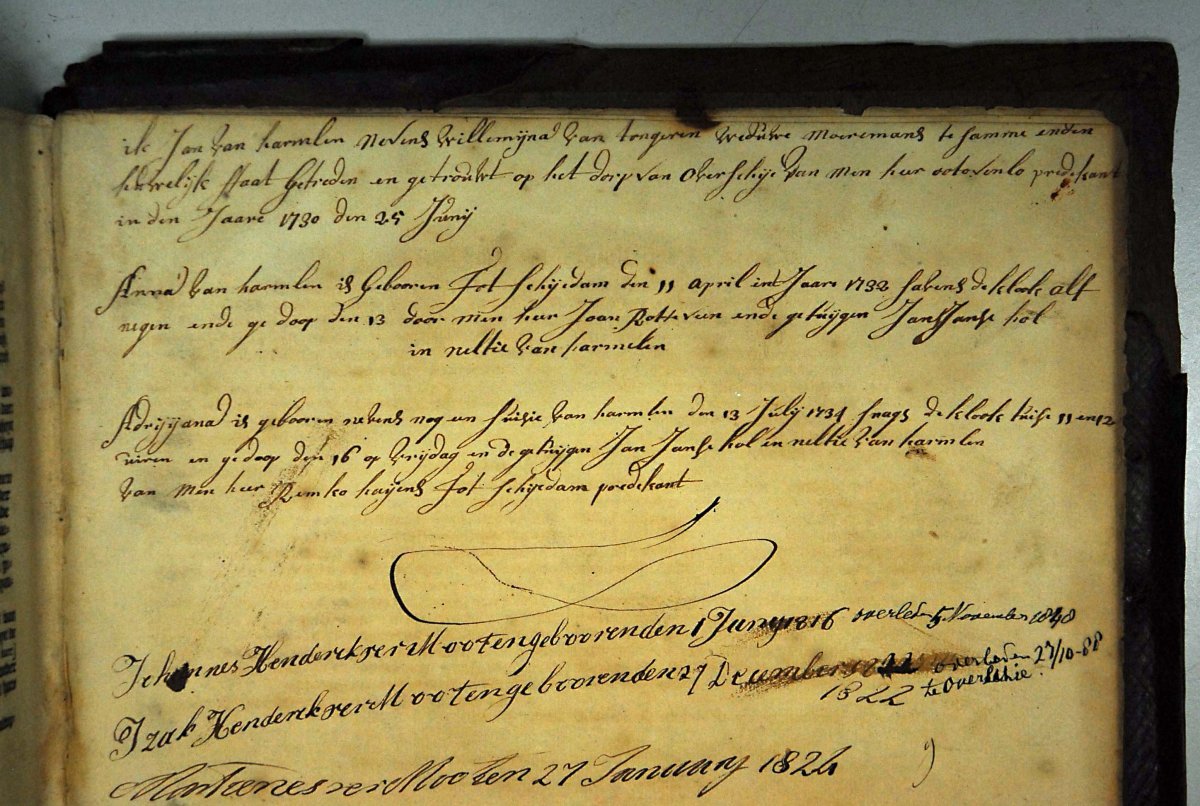 ik Jan van harmelen nevens willemijna van tongeren weduwe moermans te samme in den
huwelijk staat getreden en getrouwt op het dorp van overschije van men heer ootovenlo predekant
in den Jaare 1730 den 25 Junij
Anna van harmlen is gebooren tot schijedam den 11 april int Jaare 1733 savens de klock alf
negen ende gedoop den 13 door men heer Joan Rotteveen ende getuijgen Jan Janse hol
in neltie van harmelen
Adrijyana is gebooren nevens nog een susie van harmlen den 13 Julij 1734 snags de klock tuise 11 en 12
uiren en gedoop den 16 op vrijdag en de getuijgen Jan Janse hol en neltie van harmlen
van men heer Remko haijens tot schijedam predekant
Johannes Henderck ver Mooten geboorenden 1 Juny 1816 overleden 5 November 1848
Izak Henderck ver Mooten geboorenden 27 December overleden 27/10-88
1822 te Overschie
Martienes ver Mooten 27 January 1824